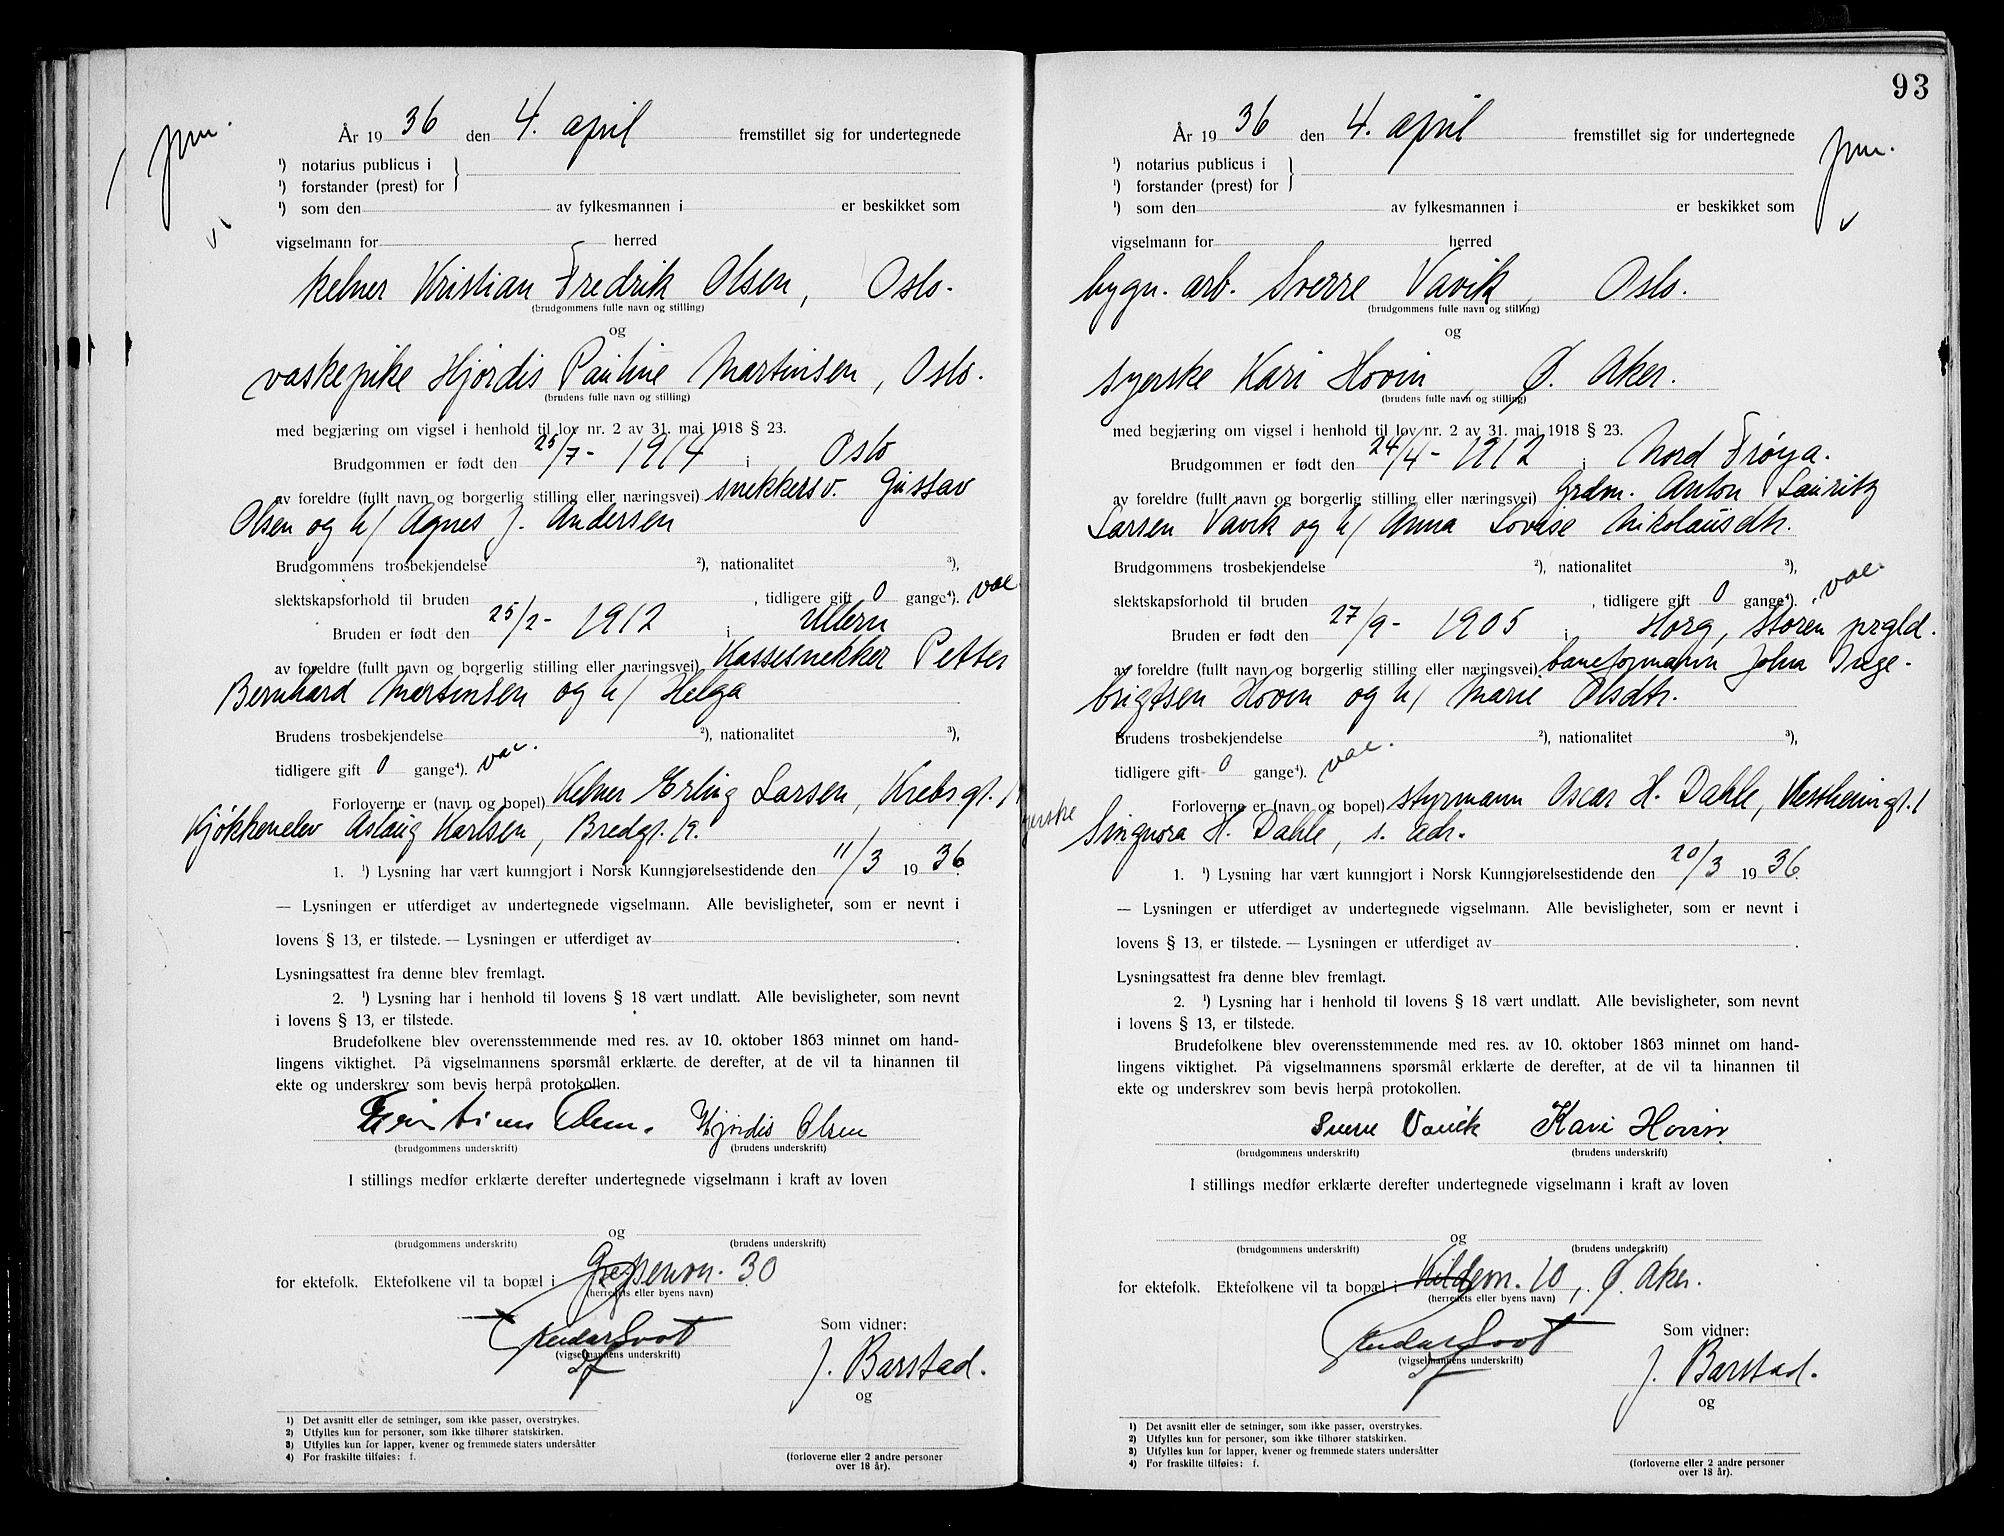 jm.
År 19 36 den 4. april fremstillet sig for undertegnede
¹) notarius publicus i
¹) forstander (prest) for
¹) som den av fylkesmannen i er beskikket som
vigselmann for herred
kelner Kristian Fredrik Olsen, Oslo.
(brudgommens fulle navn og stilling)
og
vaskepike Hjørdis Pauline Martinsen, Oslo.
(brudens fulle navn og stilling)
med begjæring om vigsel i henhold til lov nr. 2 av 31. mai 1918 § 23.
Brudgommen er født den 25/7- 1914 i Oslo
av foreldre (fullt navn og borgerlig stilling eller næringsvei) snekkersv. Gustav
Olsen og h/ Agnes J. Andersen
Brudgommens trosbekjendelse ²), nationalitet ³),
slektskapsforhold til bruden , tidligere gift 0 gange⁴). vae
Bruden er født den 25/2- 1912 i Ullern
av foreldre (fullt navn og borgerlig stilling eller næringsvei) Kassesnekker Petter
Bernhard Martinsen og h/ Helga
Brudens trosbekjendelse ²), nationalitet ³),
tidligere gift 0 gange⁴). vae.
Forloverne er (navn og bopel) Kelner Erling Larsen, Krebsgt. 1
Kjøkkenelev Aslaug Karlsen, Bredgt. 19.
1. ¹) Lysning har vært kunngjort i Norsk Kunngjørelsestidende den 11/3 1936.
— Lysningen er utferdiget av undertegnede vigselmann. Alle bevisligheter, som er nevnt i
lovens § 13, er tilstede. — Lysningen er utferdiget av .
Lysningsattest fra denne blev fremlagt.
2. ¹) Lysning har i henhold til lovens § 18 vært undlatt. Alle bevisligheter, som nevnt
i lovens § 13, er tilstede.
Brudefolkene blev overensstemmende med res. av 10. oktober 1863 minnet om hand-
lingens viktighet. På vigselmannens spørsmål erklærte de derefter, at de vil ta hinannen til
ekte og underskrev som bevis herpå protokollen.
Kristian Olsen. Hjørdis Olsen
(brudgommens underskrift) (brudens underskrift)
I stillings medfør erklærte derefter undertegnede vigselmann i kraft av loven
og
(brudgommens underskrift) (brudens underskrift)
for ektefolk. Ektefolkene vil ta bopæl i Grefsenvn. 30
(herredets eller byens navn)
Som vidner:
(vigselmannens underskrift)
J. Barstad.
og
1) Det avsnitt eller de setninger, som ikke passer, overstrykes.
2) Utfylles kun for personer, som ikke tilhører statskirken.
3) Utfylles kun for lapper, kvener og fremmede staters undersåtter
4) For fraskilte tilføies: f.
(forloverne eller 2 andre personer
over 18 år).
93
jm.
År 19 36 den 4. april fremstillet sig for undertegnede
¹) notarius publicus i
¹) forstander (prest) for
¹) som den av fylkesmannen i er beskikket som
vigselmann for herred
bygn. arb. Sverre Vavik, Oslo.
(brudgommens fulle navn og stilling)
og
syerske Kari Hovin, Ø. Aker.
(brudens fulle navn og stilling)
med begjæring om vigsel i henhold til lov nr. 2 av 31. mai 1918 § 23.
Brudgommen er født den 24/4- 1912 i Nord Frøya.
av foreldre (fullt navn og borgerlig stilling eller næringsvei) Grdm. Anton Lauritz
Larsen Vavik og h/ Anna Lovise Nikolausdtr.
Brudgommens trosbekjendelse ²), nationalitet ³),
slektskapsforhold til bruden , tidligere gift 0 gange⁴). vae.
Bruden er født den 27/9- 1905 i Horg, Støren prgld.
av foreldre (fullt navn og borgerlig stilling eller næringsvei) baneformann John Inge-
brigtsen Hovin og h/ Marie Olsdtr.
Brudens trosbekjendelse ²), nationalitet ³),
tidligere gift 0 gange⁴). vae.
Forloverne er (navn og bopel) styrmann Oscar H. Dahle, Vestheimgt. 1
syerske Singnora H. Dahle, s. adr.
1. ¹) Lysning har vært kunngjort i Norsk Kunngjørelsestidende den 20/3 1936.
— Lysningen er utferdiget av undertegnede vigselmann. Alle bevisligheter, som er nevnt i
lovens § 13, er tilstede. — Lysningen er utferdiget av .
Lysningsattest fra denne blev fremlagt.
2. ¹) Lysning har i henhold til lovens § 18 vært undlatt. Alle bevisligheter, som nevnt
i lovens § 13, er tilstede.
Brudefolkene blev overensstemmende med res. av 10. oktober 1863 minnet om hand-
lingens viktighet. På vigselmannens spørsmål erklærte de derefter, at de vil ta hinannen til
ekte og underskrev som bevis herpå protokollen.
Sverre Vavik Kari Hovin
(brudgommens underskrift) (brudens underskrift)
I stillings medfør erklærte derefter undertegnede vigselmann i kraft av loven
og
(brudgommens underskrift) (brudens underskrift)
for ektefolk. Ektefolkene vil ta bopæl i Kildevn. 10, Ø. Aker.
(herredets eller byens navn)
Som vidner:
(vigselmannens underskrift)
J. Barstad.
og
1) Det avsnitt eller de setninger, som ikke passer, overstrykes.
2) Utfylles kun for personer, som ikke tilhører statskirken.
3) Utfylles kun for lapper, kvener og fremmede staters undersåtter
4) For fraskilte tilføies: f.
(forloverne eller 2 andre personer
over 18 år).